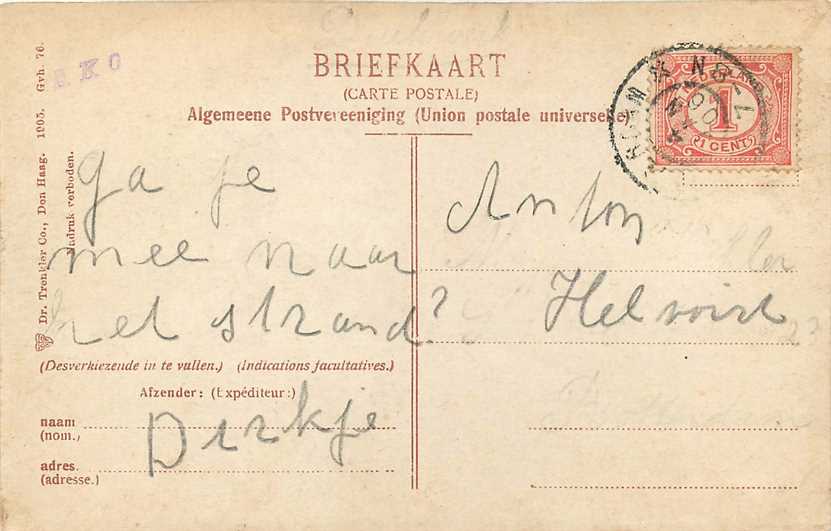 BRIEFKAART
(CARTE POSTALE)
Algemeene Postvereeniging (Union postale universelle)
1
1 CENT
Dr. Trenkler Co., Den Haag. 1905. Gvh. 76.
Nadruk verboden.
Ga je
mee naar
het strand?
(Desverkiezende in te vullen.) (Indications facultatives.)
Afzender: (Expéditeur:)
naam
(nom.)
Dirkje
adres.
(adresse.)
Anton
Helvoirt